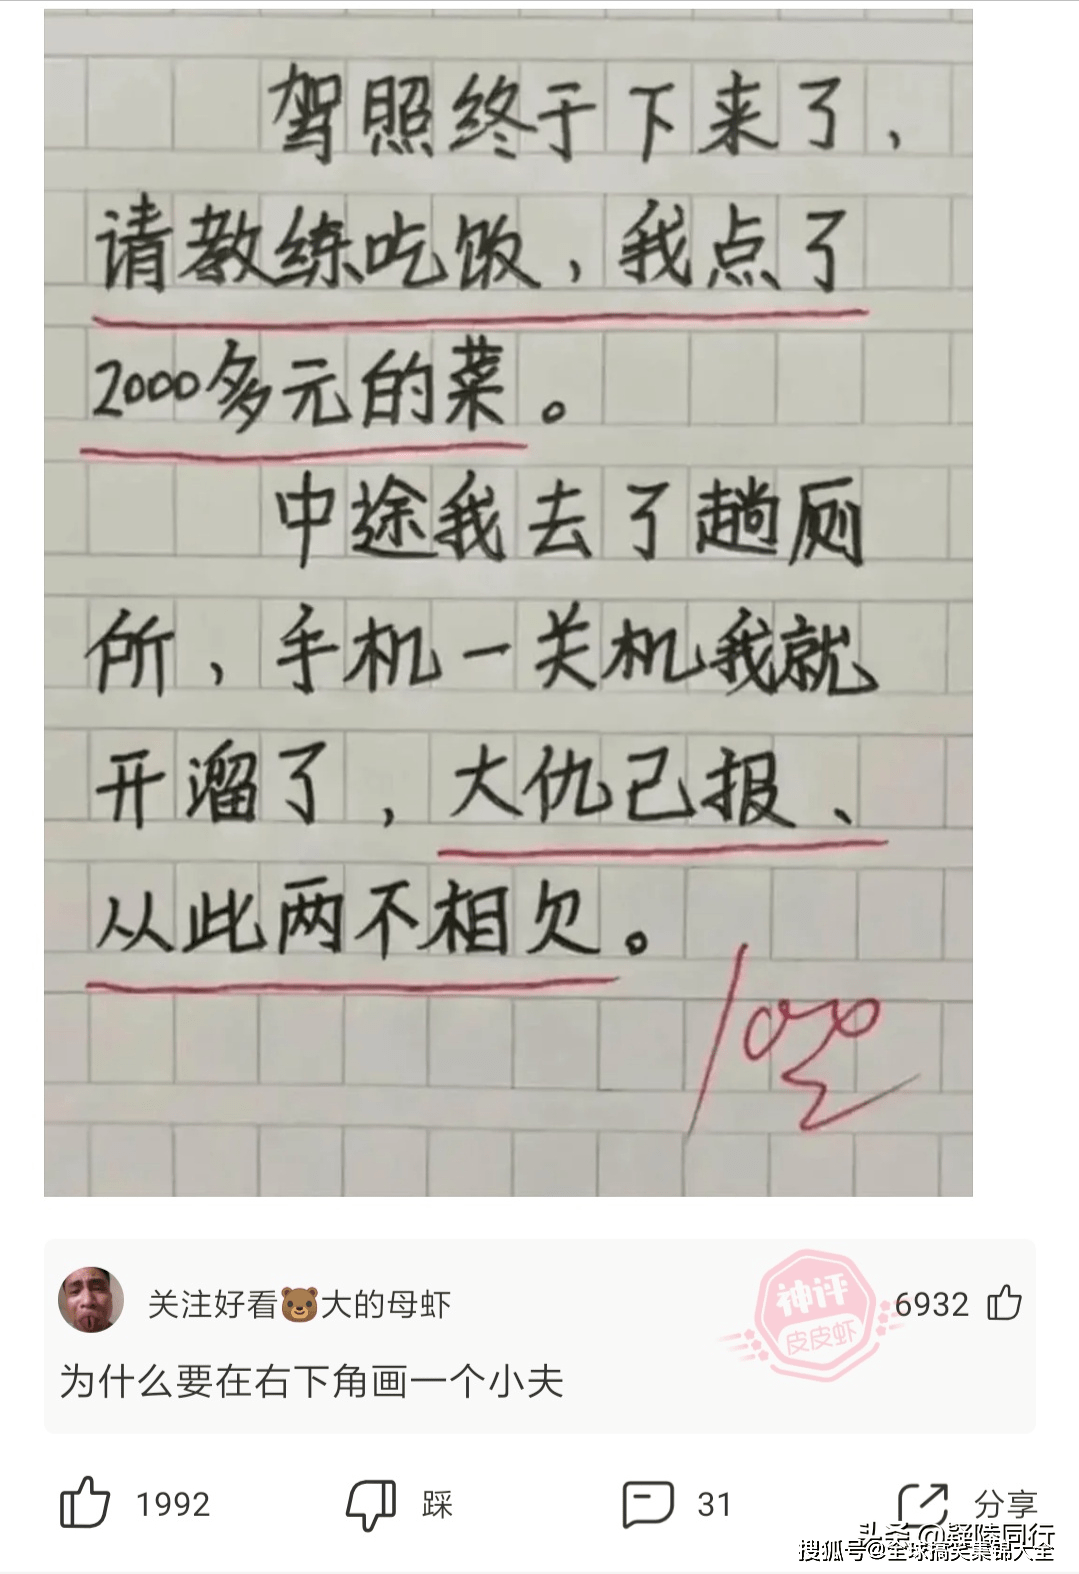 驾照终于下来了，
请教练吃饭，我点了
2000多元的菜。
中途我去了趟厕
所，手机一关机我就
开溜了，大仇已报、
从此两不相欠。
100
关注好看🐻大的母虾
神评
皮皮虾
6932
为什么要在右下角画一个小夫
1992
踩
31
分享
头条 @疑陵同行
搜狐号@全球搞笑集锦大全